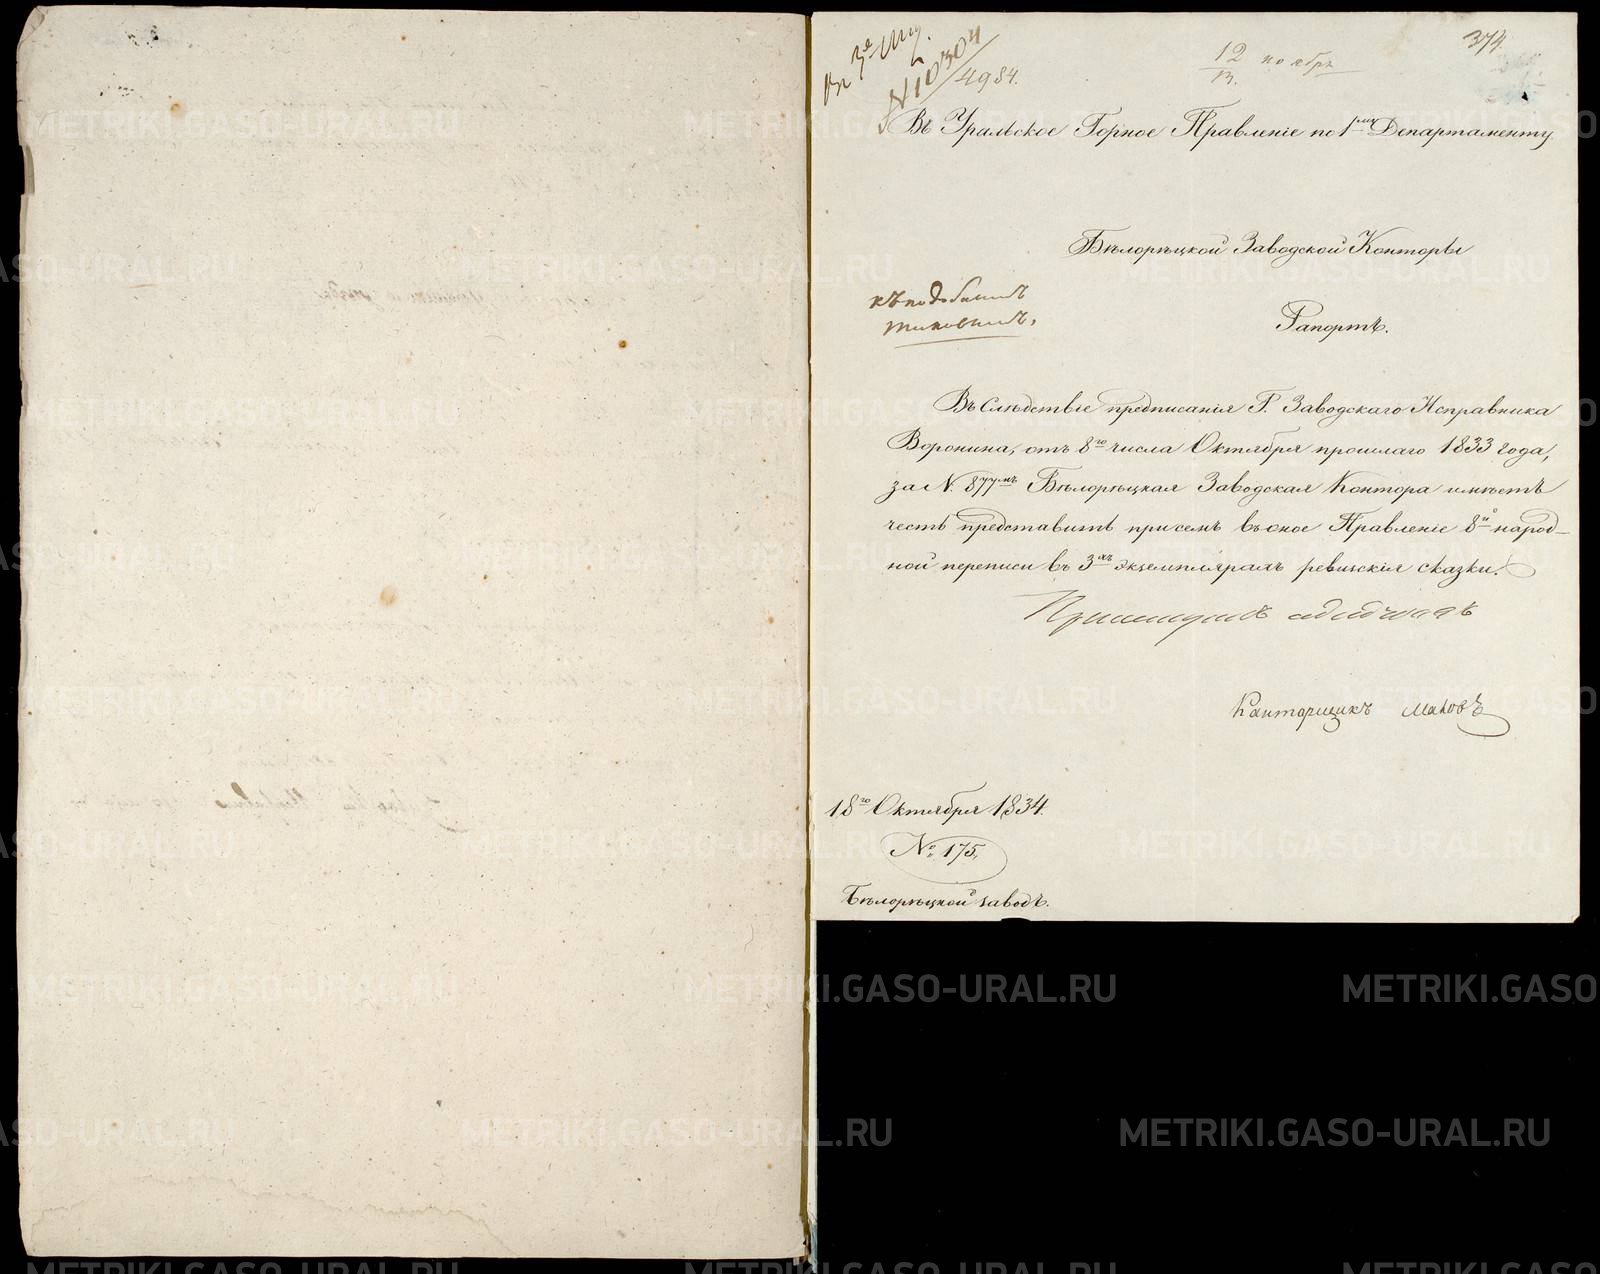 374.
12 ноябр
13.
№ 10304
4984.
Въ Уральское Горное Правленіе по 1му Департаменту
Бѣлорѣцкой Заводской Конторы
къ подобнымъ
Рапортъ.
Въ Слѣдствіе предписанія Г. Заводскаго Исправника
Воронина, отъ 8го числа Октября прошлаго 1833 года,
за №. 877мъ Бѣлорѣцкая Заводская Контора имѣетъ
честь представить при семъ въ оное Правленіе 8й народ-
ной переписи въ 3хъ экземплярахъ ревизскія сказки.
Канторщикъ Маховъ
18го Октября 1834.
№ 175.
Бѣлорѣцкой заводъ.
METRIKI.GASO-URAL.RU